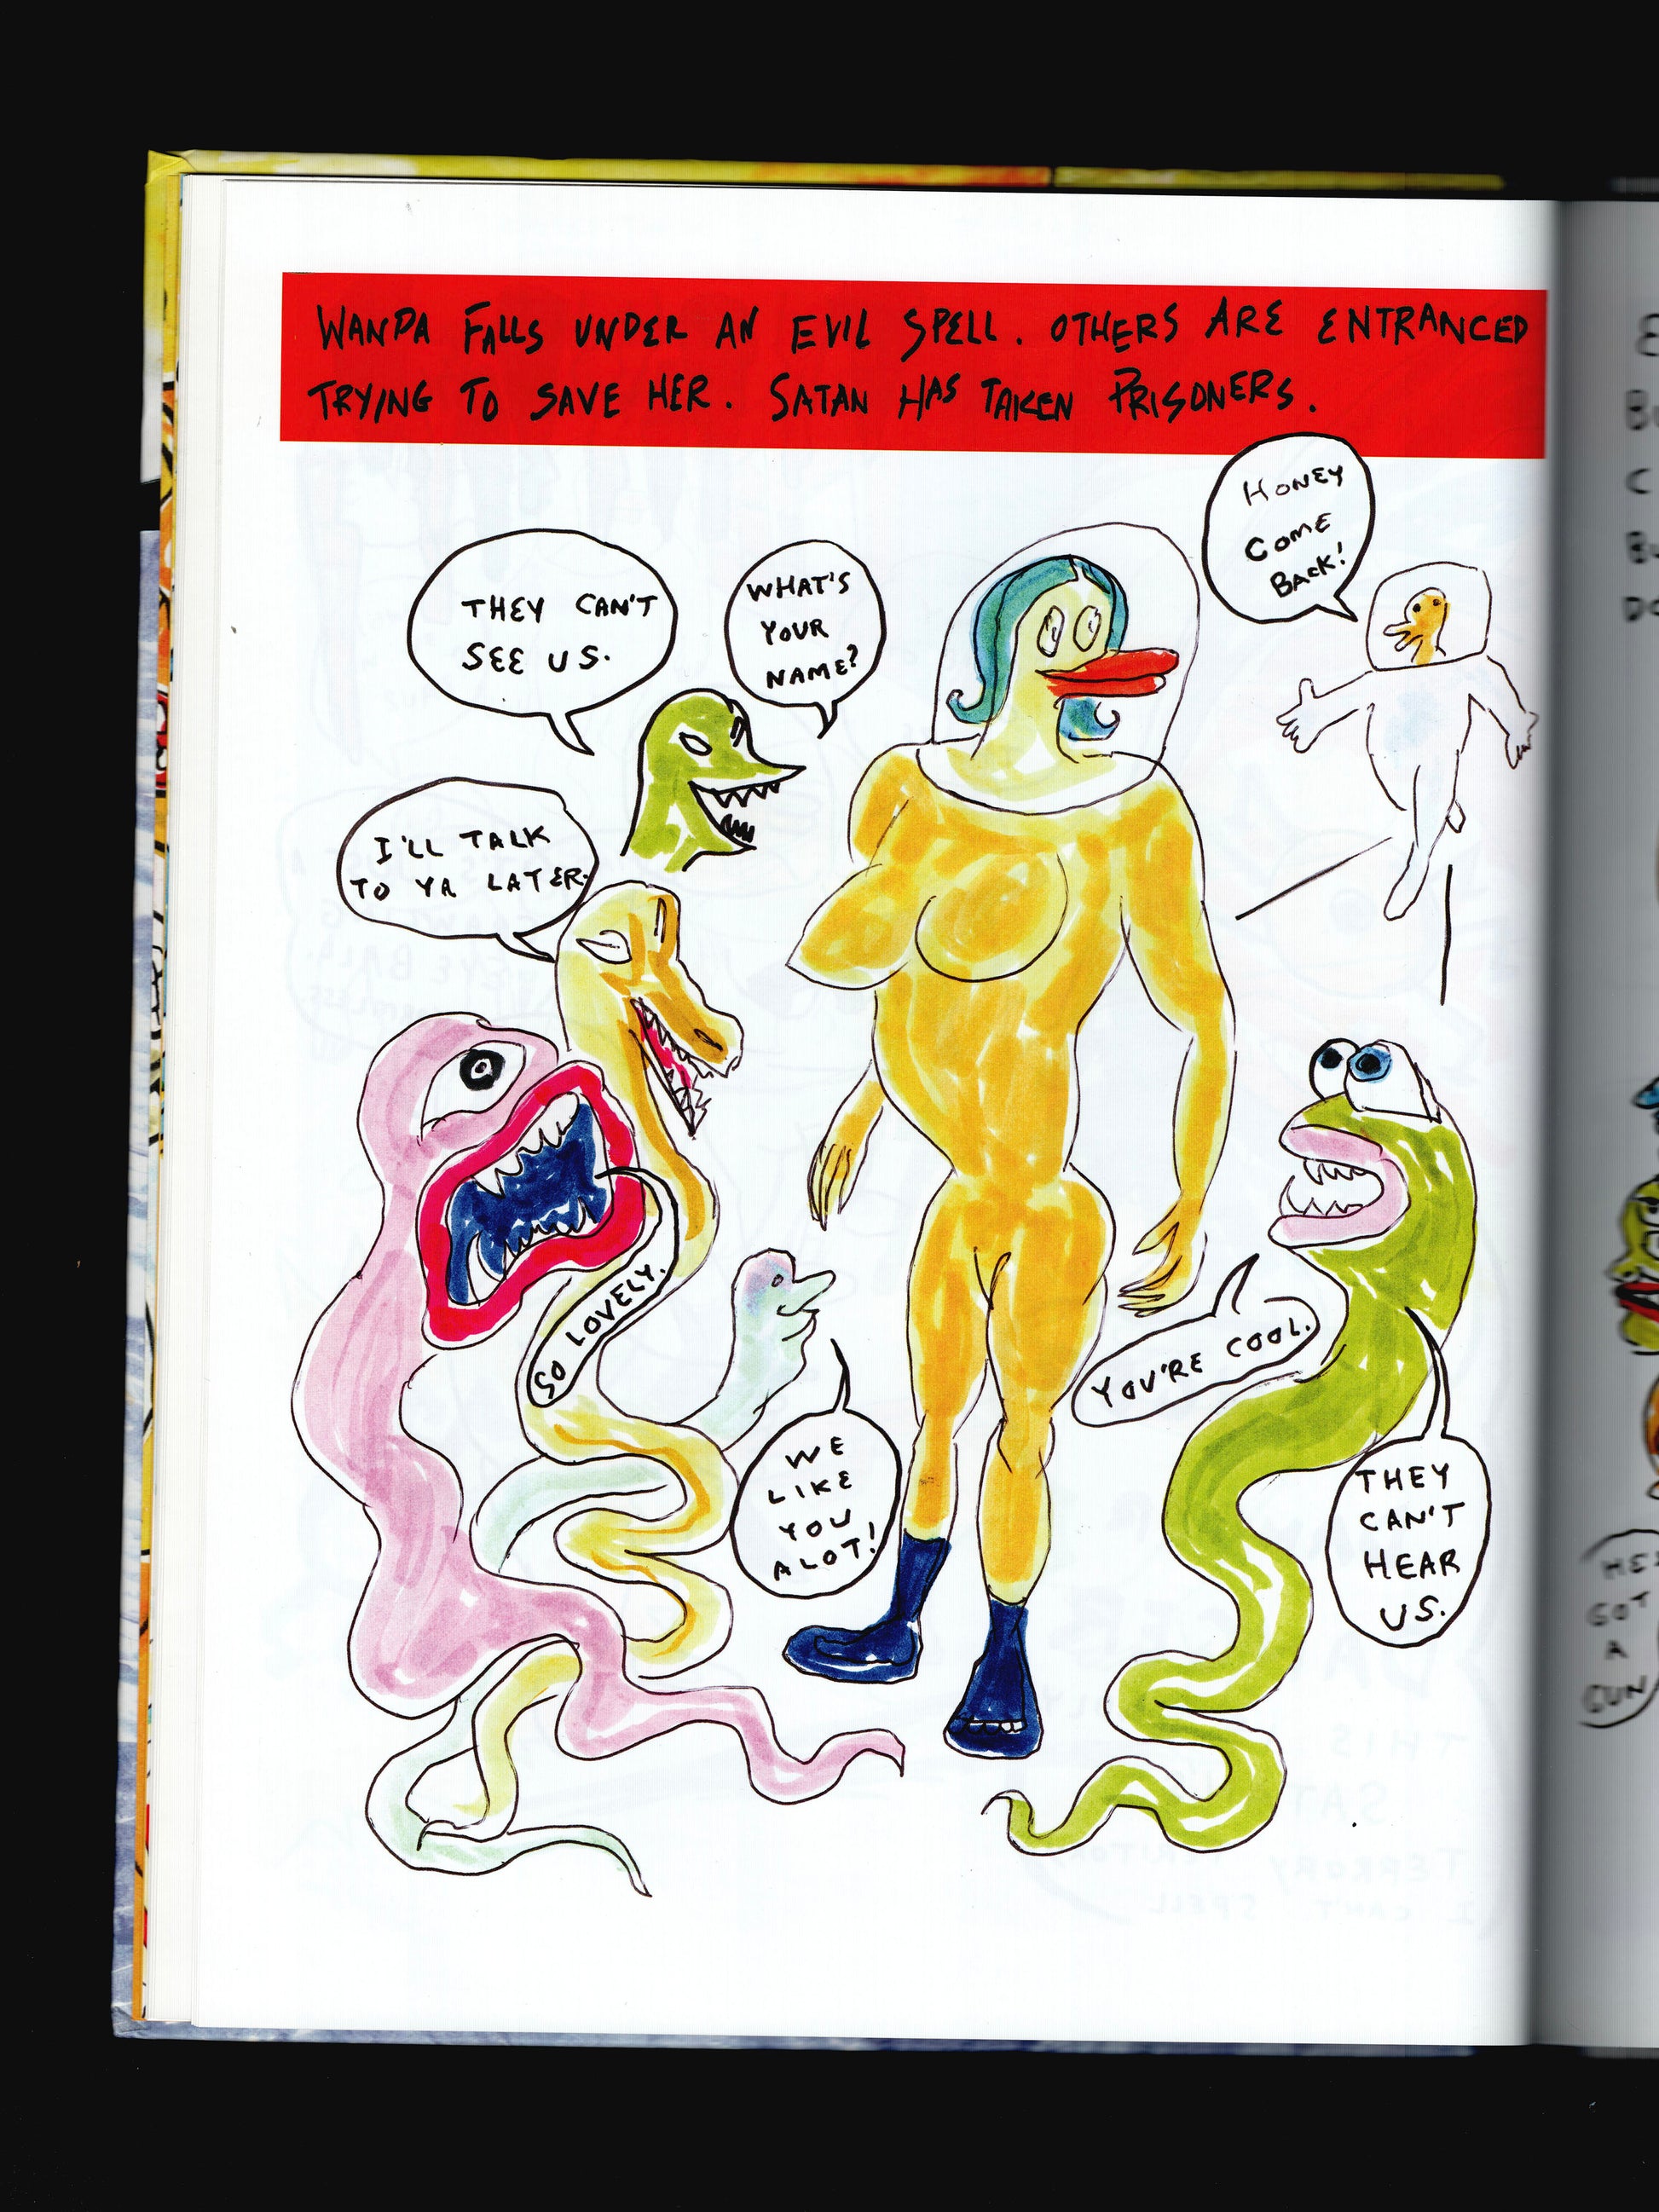 WANDA FALLS UNDER AN EVIL SPELL. OTHERS ARE ENTRANCED
TRYING TO SAVE HER. SATAN HAS TAKEN PRISONERS.
HONEY
COME
BACK!
THEY CAN'T
SEE US.
WHAT'S
YOUR
NAME?
I'LL TALK
TO YA LATER.
SO LOVELY.
WE
LIKE
YOU
ALOT!
YOU'RE COOL.
THEY
CAN'T
HEAR
US.
GOT
A
GUN